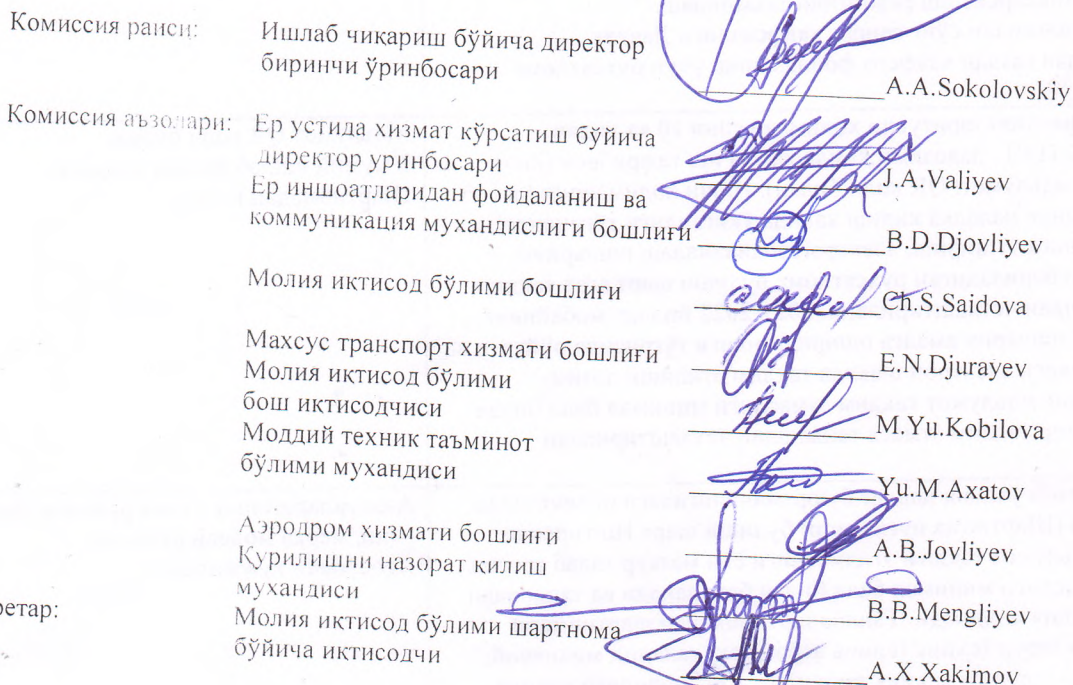 Комиссия раиси: Ишлаб чикариш бўйича директор
биринчи ўринбосари
A.A.Sokolovskiy
Комиссия аъзолари: Ер устида хизмат кўрсатиш бўйича
директор уринбосари J.A.Valiyev
Ер иншоатларидан фойдаланиш ва
коммуникация мухандислиги бошлиғи B.D.Djovliyev
Молия иктисод бўлими бошлиғи Ch.S.Saidova
Махсус транспорт хизмати бошлиғи E.N.Djurayev
Молия иктисод бўлими
бош иктисодчиси M.Yu.Kobilova
Моддий техник таъминот
бўлими мухандиси Yu.M.Axatov
Аэродром хизмати бошлиғи A.B.Jovliyev
Қурилишни назорат килиш
мухандиси B.B.Mengliyev
ретар: Молия иктисод бўлими шартнома
бўйича иктисодчи A.X.Xakimov